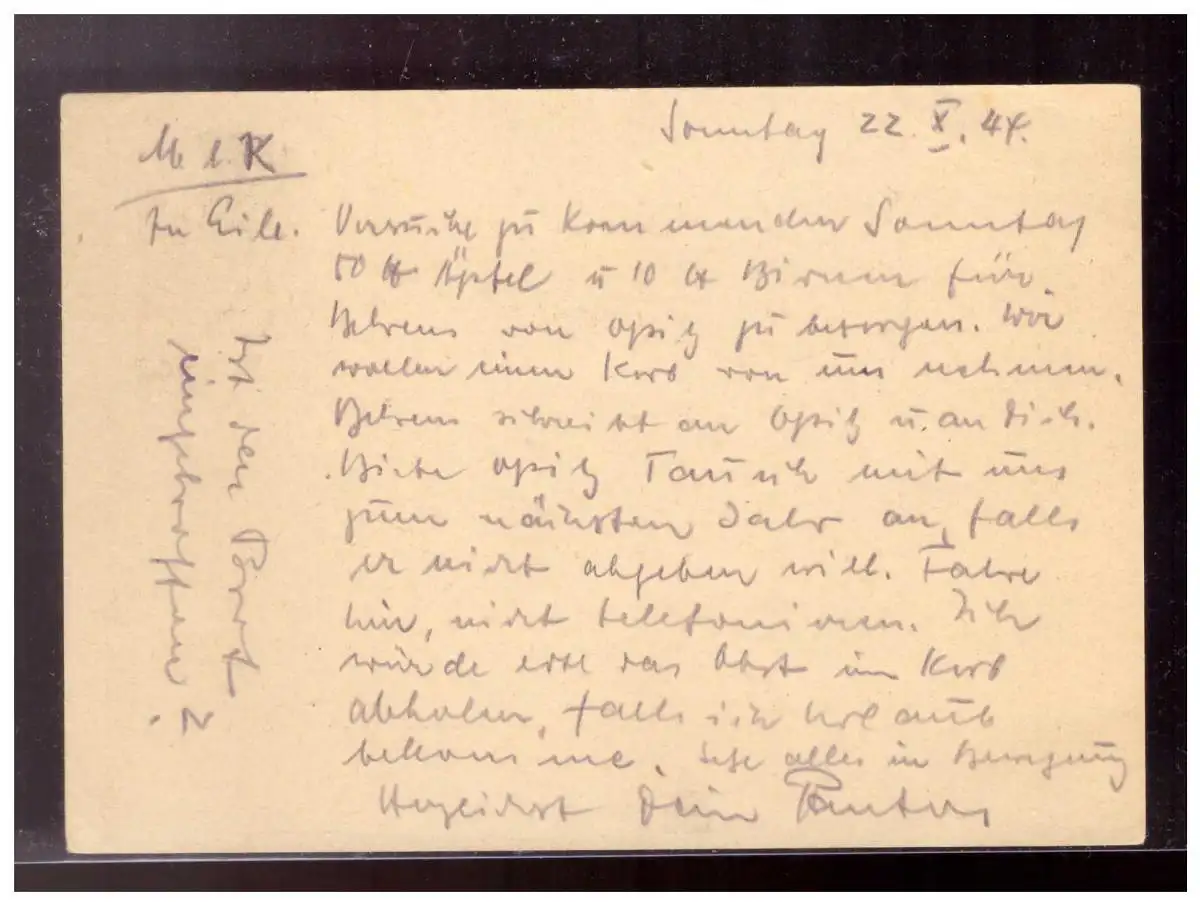 Sonntag 22. X. 44.
M. l. K
In Eile. Versuche zu kommenden Sonntag
50 ℔ Äpfel u 10 ℔ Birnen für
Behrens von Opitz zu besorgen. Wir
wollen einen Korb von uns nehmen.
Behrens schreibt an Opitz u. an Dich.
Biete Opitz Tausch mit uns
zum nächsten Jahr an, falls
er nicht abgeben will. Fahre
hin, nicht telefonieren. Ich
würde evtl das Obst im Korb
abholen, falls ich Urlaub
bekomme. Setze alles in Bewegung
Herzlichst Dein
Ist der
eingetroffen?